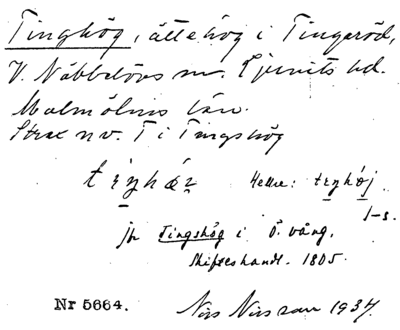 Tinghög, ättehög i Tingaröd,
V. Nöbbelövs sn. Ljunits hd.
Malmöhus län.
Strax nv. T i Tingshög
Hellre:
jfr Tingshög i Ö. vång,
Skifteshandl. 1805.
Nr 5664. Nils Nilsson 1937.